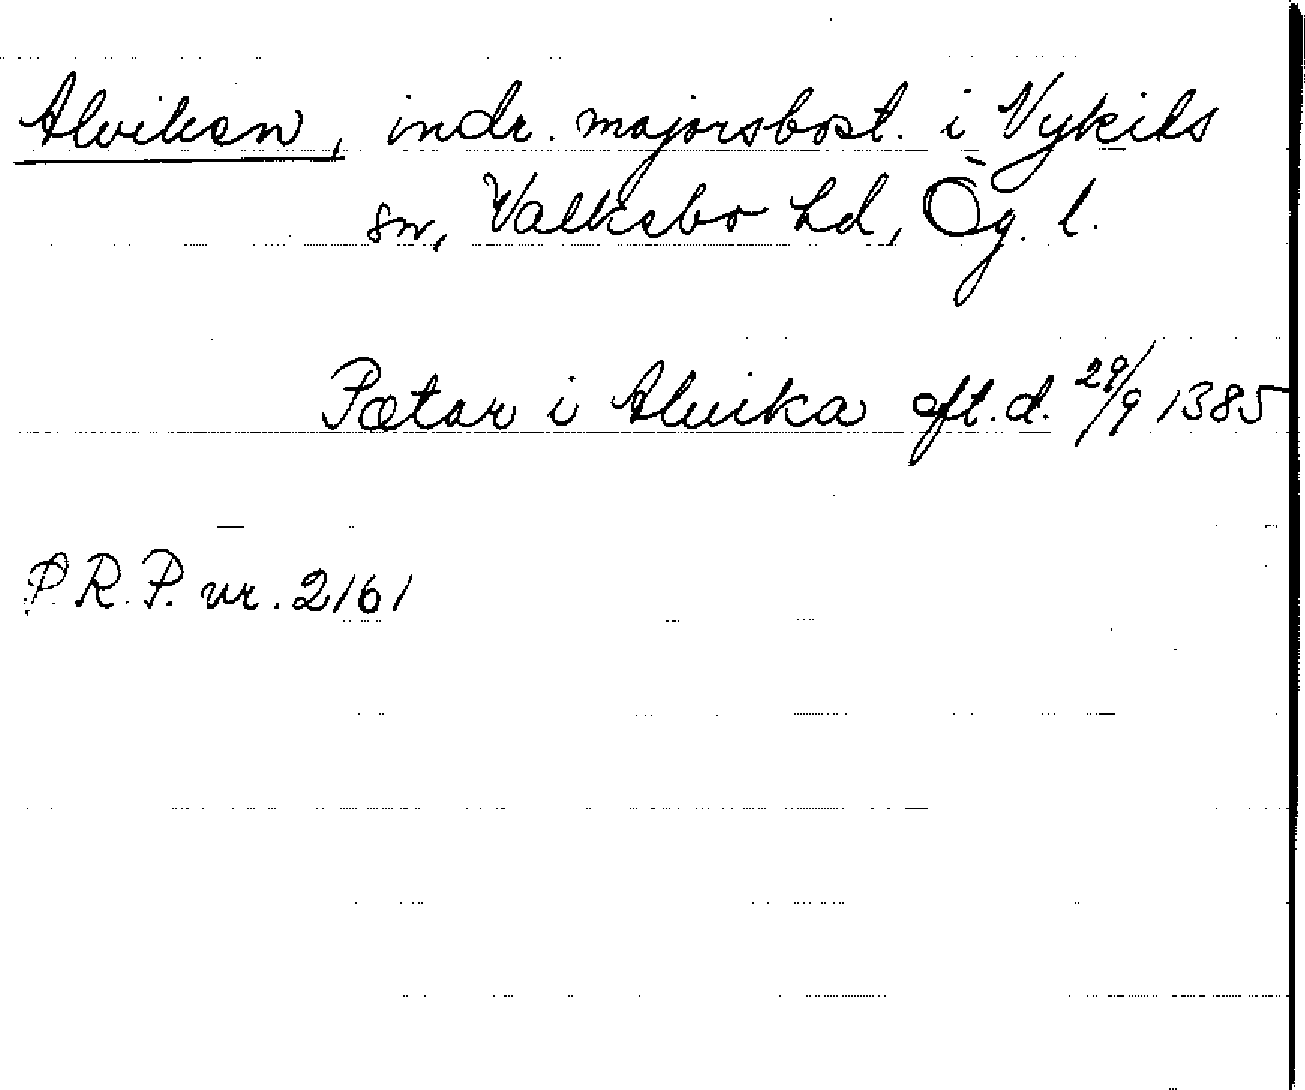 Alviken, indr. majorsbost. i Vykils
sn, Valkebo hd, Ög. l.
Pætar i Aluika oft. d. 29/9 1385
P.R.P. nr. 2161